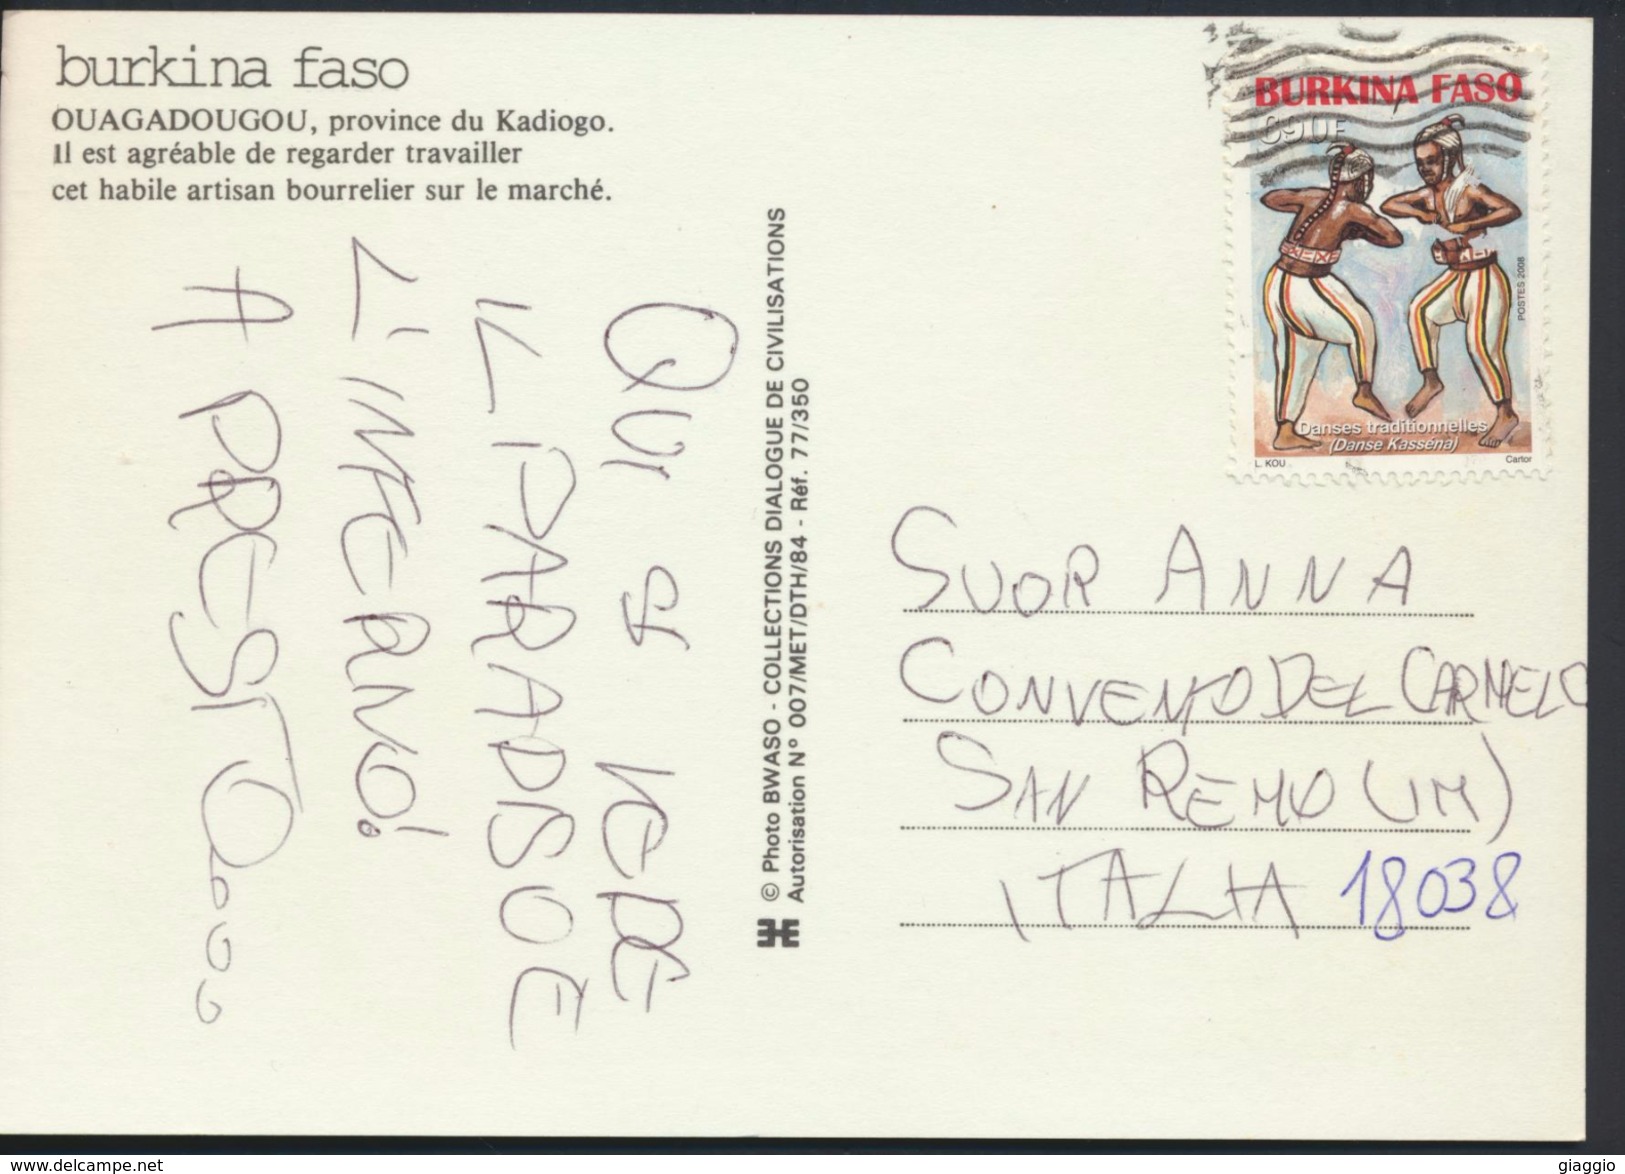 burkina faso
OUAGADOUGOU, province du Kadiogo.
Il est agréable de regarder travailler
cet habile artisan bourrelier sur le marché.
QUI SI VEDE
IL PARADISO E
L'INFERNO!
A PRESTO...
© Photo BWASO - COLLECTIONS DIALOGUE DE CIVILISATIONS
Autorisation N° 007/MET/DTH/84 - Réf. 77/350
BURKINA FASO
690F
POSTES 2008
Danses traditionnelles
(Danse Kasséna)
L. KOU
Cartor
SUOR ANNA
CONVENTO DEL CARMELO
SAN REMO (IM)
ITALIA 18038
www.delcampe.net
giaggio